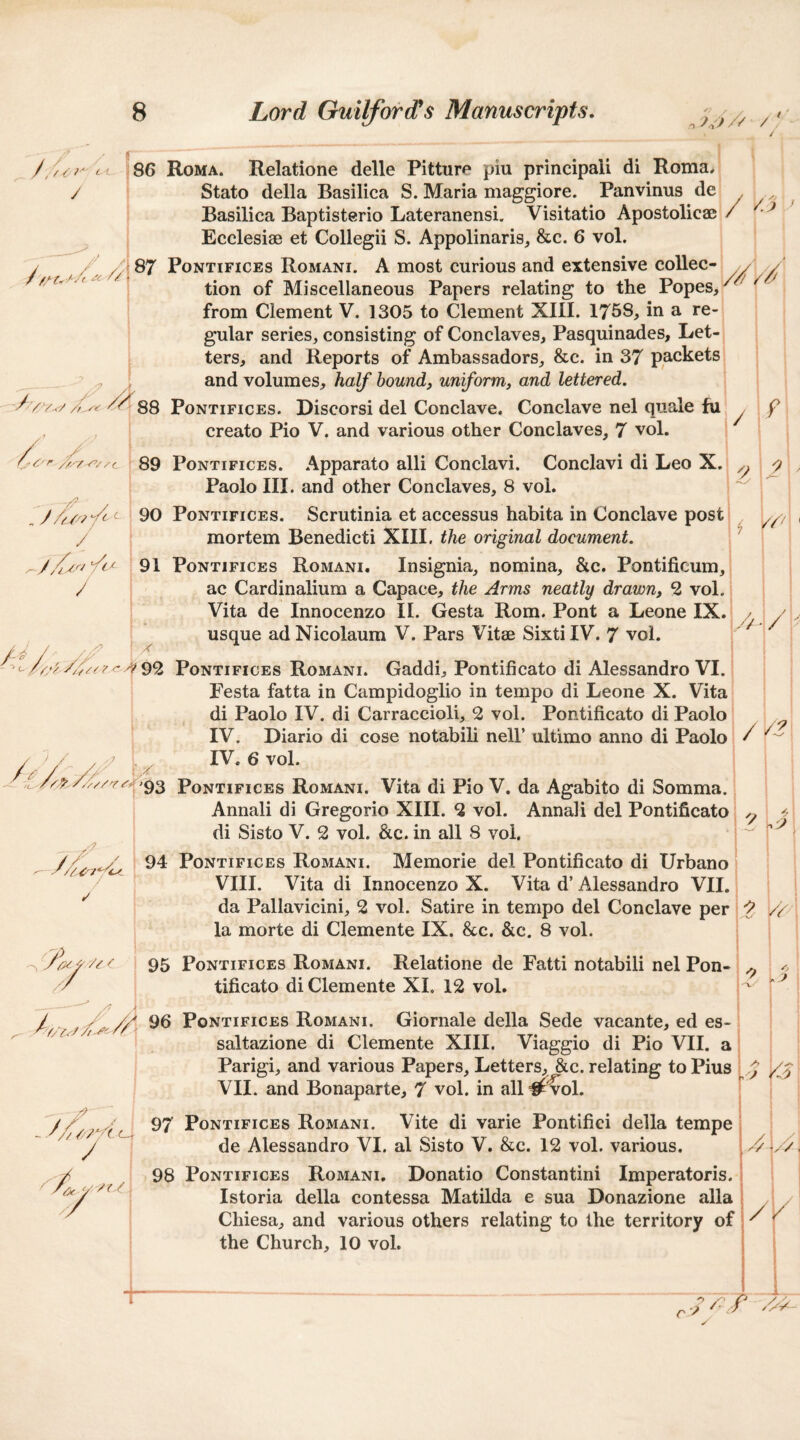 8 Lord Guilford's Manuscripts.
86 Roma. Relatione delle Pitture piu principali di Roma.
Stato della Basilica S. Maria maggiore. Panvinus de
Basilica Baptisterio Lateranensi. Visitatio Apostolicæ
Ecclesiæ et Collegii S. Appolinaris, &c. 6 vol.
87 Pontifices Romani. A most curious and extensive collec-
tion of Miscellaneous Papers relating to the Popes,
from Clement V. 1305 to Clement XIII. 1758, in a re-
gular series, consisting of Conclaves, Pasquinades, Let-
ters, and Reports of Ambassadors, &c. in 37 packets
and volumes, half bound, uniform, and lettered.
88 Pontifices. Discorsi del Conclave. Conclave nel quale fu
creato Pio V. and various other Conclaves, 7 vol.
89 Pontifices. Apparato alli Conclavi. Conclavi di Leo X.
Paolo III. and other Conclaves, 8 vol.
90 Pontifices. Scrutinia et accessus habita in Conclave post
mortem Benedicti XIII. the original document.
91 Pontifices Romani. Insignia, nomina, &c. Pontificum,
ac Cardinalium a Capace, the Arms neatly drawn, 2 vol.
Vita de Innocenzo II. Gesta Rom. Pont a Leone IX.
usque ad Nicolaum V. Pars Vitæ Sixti IV. 7 vol.
92 Pontifices Romani. Gaddi, Pontificato di Alessandro VI.
Festa fatta in Campidoglio in tempo di Leone X. Vita
di Paolo IV. di Carraccioli, 2 vol. Pontificato di Paolo
IV. Diario di cose notabili nell' ultimo anno di Paolo
IV. 6 vol.
93 Pontifices Romani. Vita di Pio V. da Agabito di Somma.
Annali di Gregorio XIII. 2 vol. Annali del Pontificato
di Sisto V. 2 vol. &c. in all 8 vol.
94 Pontifices Romani. Memorie del Pontificato di Urbano
VIII. Vita di Innocenzo X. Vita d' Alessandro VII.
da Pallavicini, 2 vol. Satire in tempo del Conclave per
la morte di Clemente IX. &c. &c. 8 vol.
95 Pontifices Romani. Relatione de Fatti notabili nel Pon-
tificato di Clemente XI. 12 vol.
96 Pontifices Romani. Giornale della Sede vacante, ed es-
saltazione di Clemente XIII. Viaggio di Pio VII. a
Parigi, and various Papers, Letters, &c. relating to Pius
VII. and Bonaparte, 7 vol. in all vol.
97 Pontifices Romani. Vite di varie Pontifici della tempe
de Alessandro VI. al Sisto V. &c. 12 vol. various.
98 Pontifices Romani. Donatio Constantini Imperatoris.
Istoria della contessa Matilda e sua Donazione alla
Chiesa, and various others relating to the territory of
the Church, 10 vol.